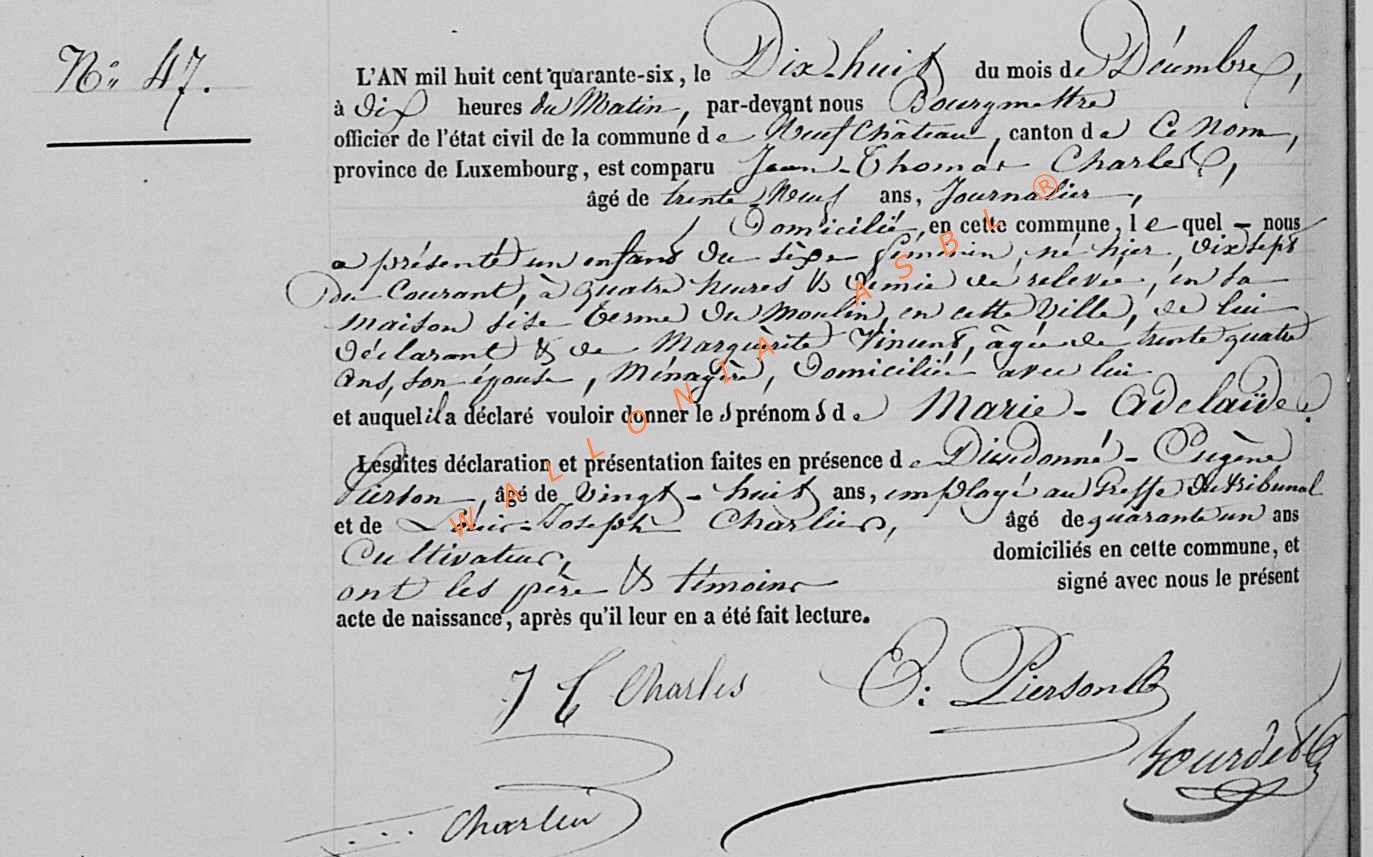 N° 47.
L'AN mil huit cent quarante-six, le Dix-huit du mois de Décembre,
à dix heures du Matin, par-devant nous Bourgmestre
officier de l'état civil de la commune de Neufchâteau, canton de Ce Nom,
province de Luxembourg, est comparu Jean-Thomas Charles,
âgé de trente Neuf ans, Journalier,
Domicilié, en cette commune, lequel nous
a présenté un enfant du sèxe féminin, né hier, dix sept
du Courant, à quatre heures & demie de relevée, en sa
maison sise terme du Moulin, en cette Ville, de lui
déclarant & de Marguérite Vincent, âgée de trente quatre
ans, son épouse, Ménagère, Domiciliée avec lui
et auquel il a déclaré vouloir donner les prénoms de Marie-Adelaïde.
Lesdites déclaration et présentation faites en présence de Dieudonné-Eugène
Pierson, âgé de Vingt-huit ans, employé au Greffe du tribunal
et de Louis-Joseph Charlier, âgé de quarante un ans
Cultivateur, domiciliés en cette commune, et
ont les père & témoins signé avec nous le présent
acte de naissance, après qu'il leur en a été fait lecture.
J T Charles E: Pierson
Charlier
WALLONIA ASBL ®